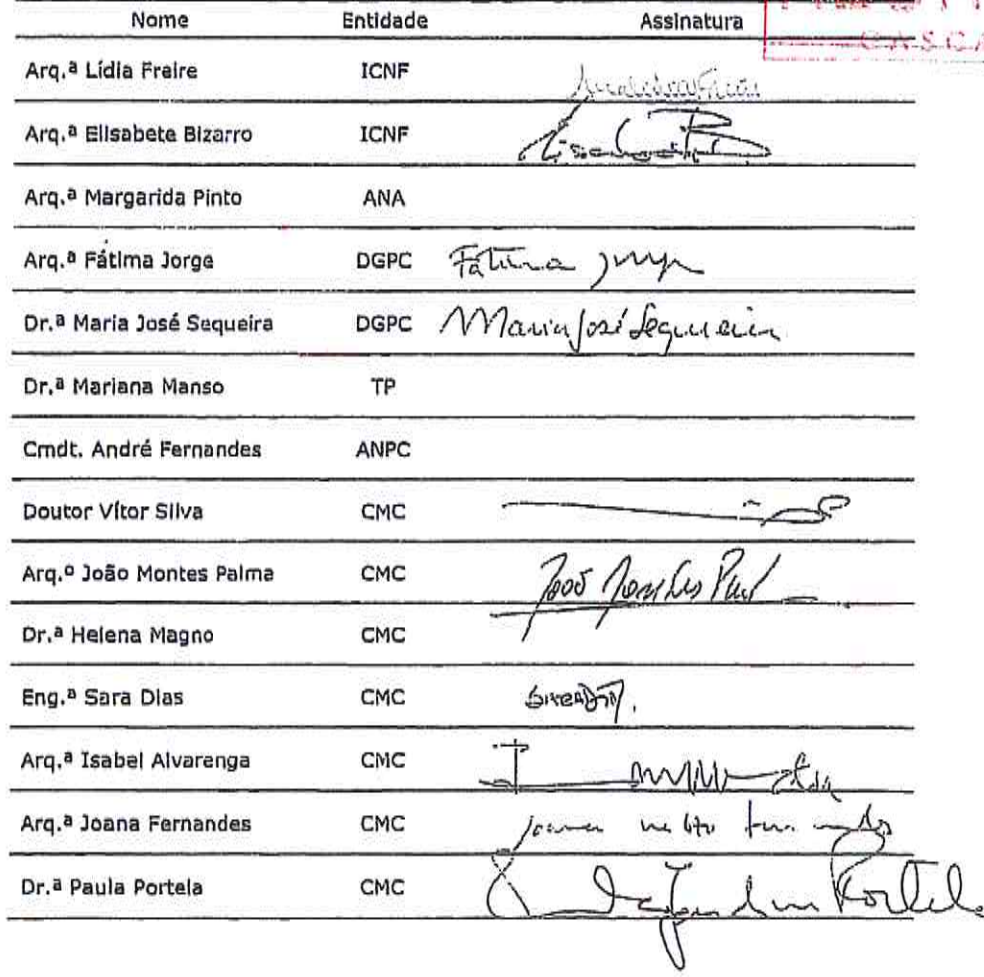 Nome Entidade Assinatura
CASCA
Arq.ª Lídia Freire ICNF
Arq.ª Elisabete Bizarro ICNF
Arq.ª Margarida Pinto ANA
Arq.ª Fátima Jorge DGPC Fátima Jorge
Dr.ª Maria José Sequeira DGPC Maria José Sequeira
Dr.ª Mariana Manso TP
Cmdt. André Fernandes ANPC
Doutor Vítor Silva CMC
Arq.º João Montes Palma CMC João Montes Pal
Dr.ª Helena Magno CMC
Eng.ª Sara Dias CMC
Arq.ª Isabel Alvarenga CMC
Arq.ª Joana Fernandes CMC Joana
Dr.ª Paula Portela CMC Portela